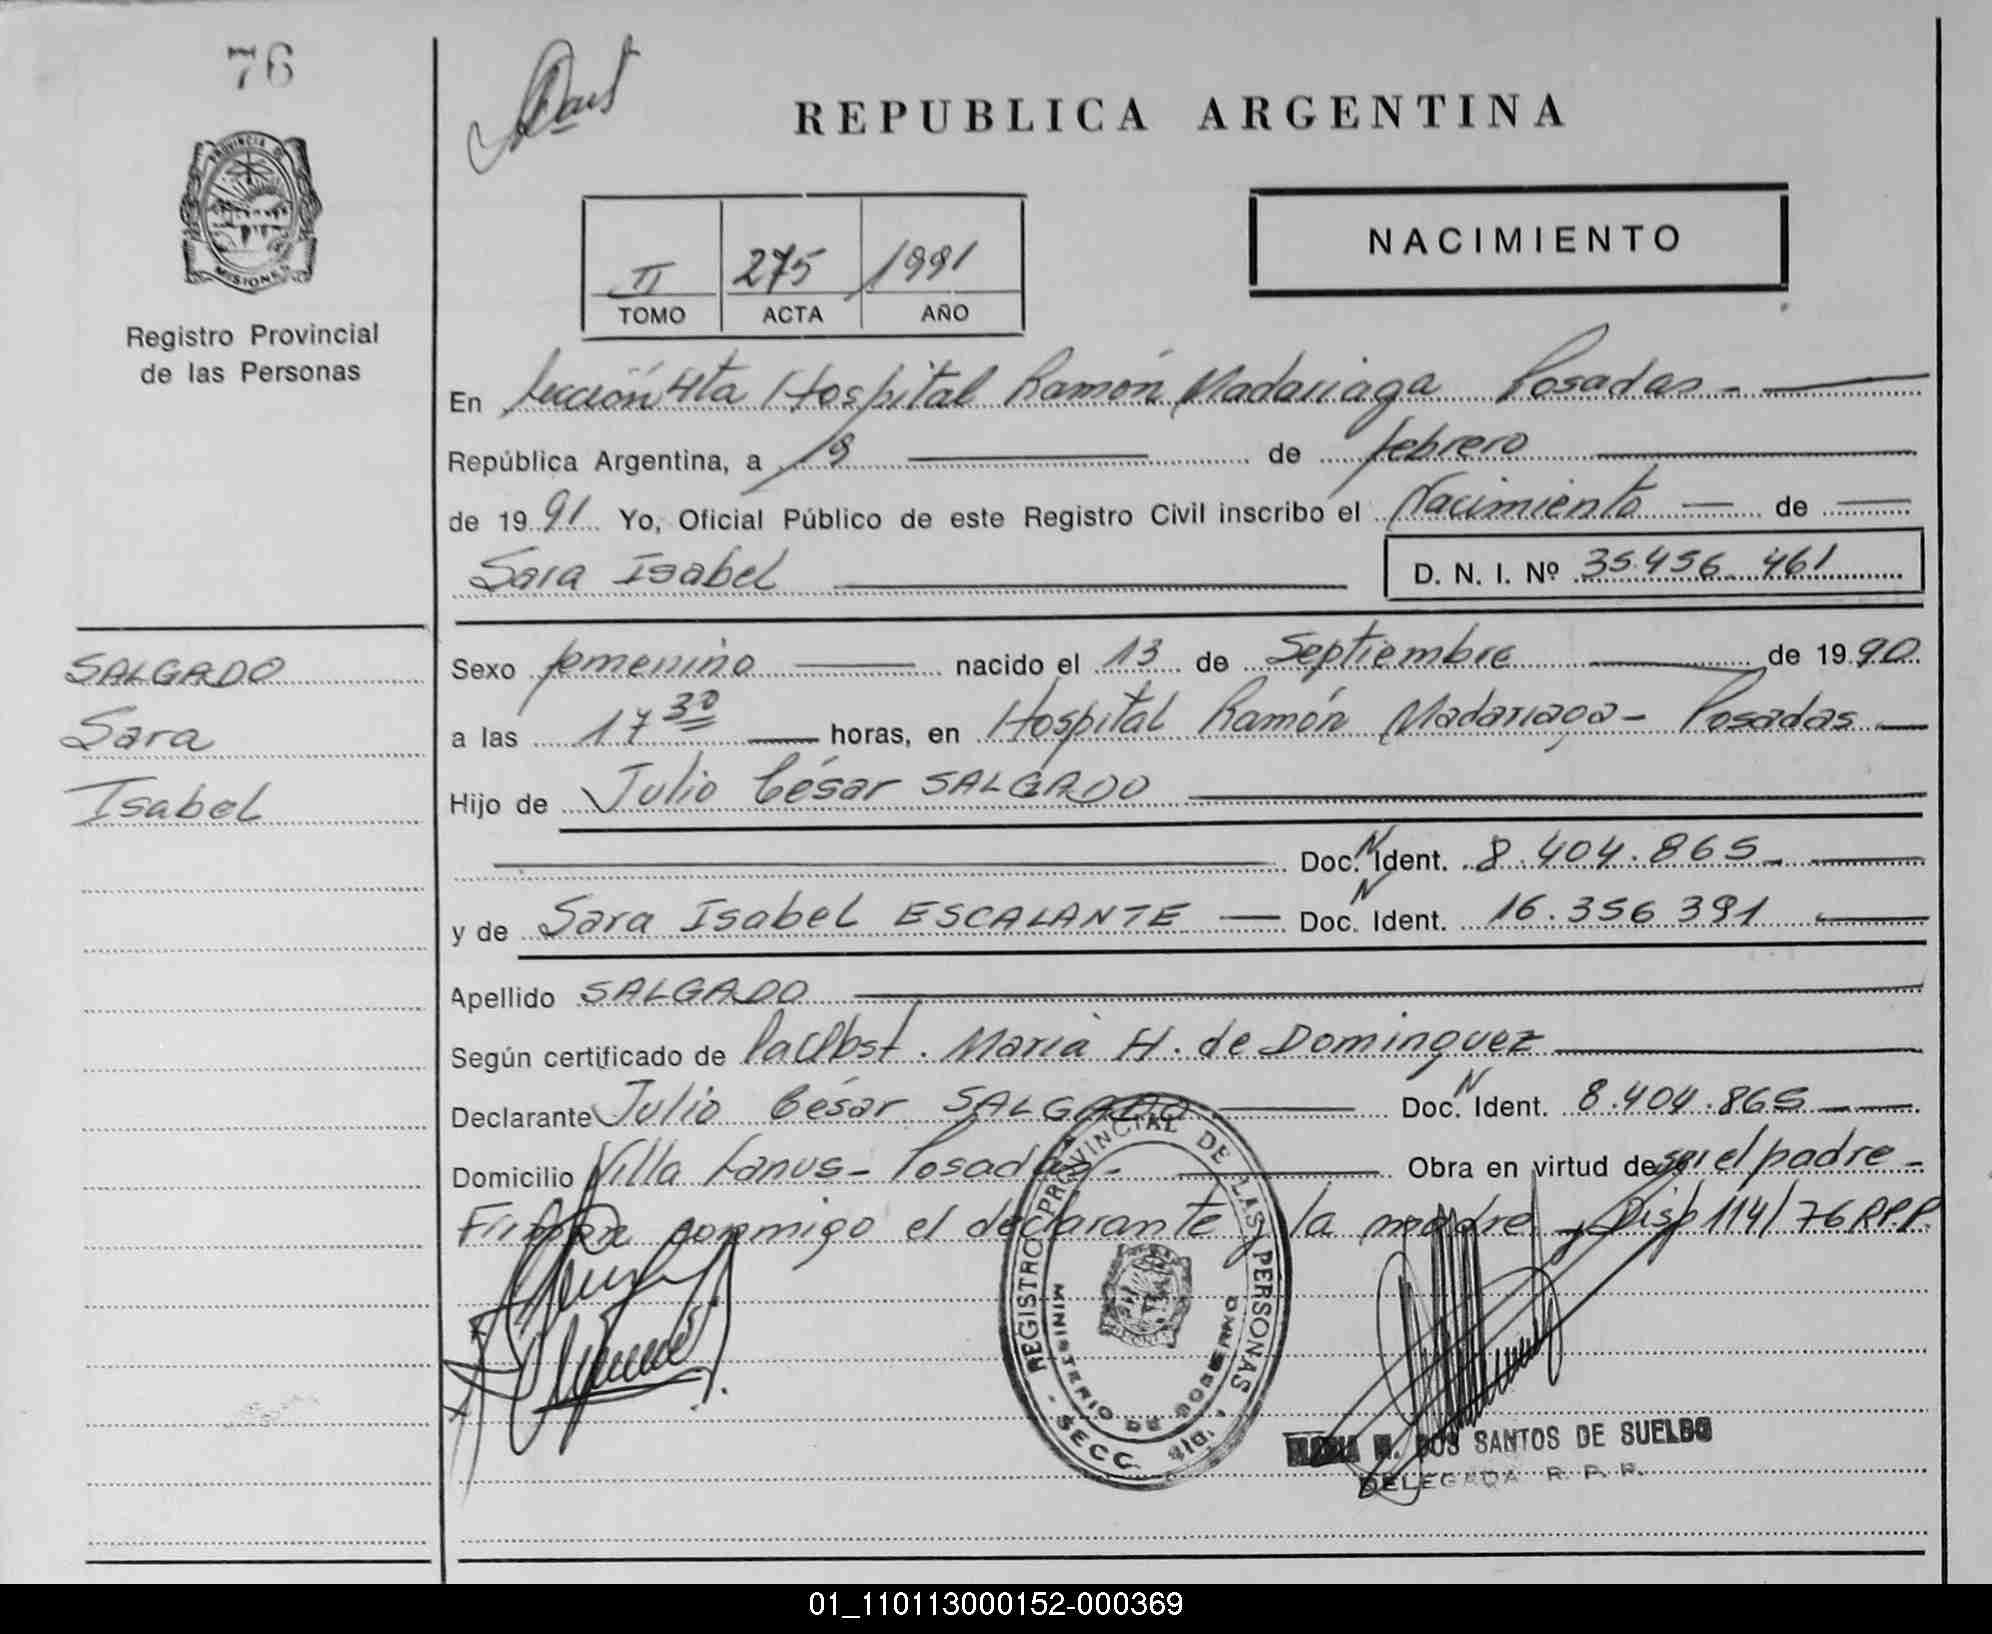 76
REPUBLICA ARGENTINA
PROVINCIA DE
MISIONES
Registro Provincial
de las Personas
II 275 1991
TOMO ACTA AÑO
NACIMIENTO
En Sección 4ta Hospital Ramón Madariaga Posadas -
República Argentina, a 19 de febrero
de 1991 Yo, Oficial Público de este Registro Civil inscribo el Nacimiento de
Sara Isabel
D. N. I. Nº 35.456.461
SALGADO
Sara
Isabel
Sexo femenino nacido el 13 de Septiembre de 1990
a las 17 30 horas, en Hospital Ramón Madariaga - Posadas
Hijo de Julio César SALGADO
Doc. N Ident. 8.404.865
y de Sara Isabel ESCALANTE Doc. N Ident. 16.356.391
Apellido SALGADO
Según certificado de Obst. María H. de Dominguez
Declarante Julio César SALGADO Doc. N Ident. 8.404.865
Domicilio Villa Lanus - Posadas - Obra en virtud de ser el padre -
Firman conmigo el declarante y la madre y Disp 114/76 R.P.P.
REGISTRO PROVINCIAL DE LAS PERSONAS
MINISTERIO DE GOBIERNO
SECC.
DOS SANTOS DE SUELDO
DELEGADA R. P. P.
01_110113000152-000369